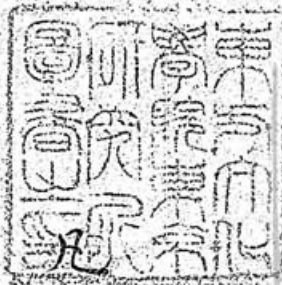 東方文化
學院東京
研究所
圖書印
凡